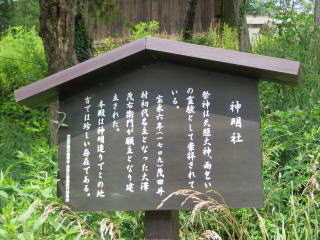 神明社
祭神は天照大神、雨乞い
の霊験として崇拝されて
いる。
宝永六年(一七〇九)茂田井
村初代名主となった大澤
茂右衛門が願主となり建
立された。
本殿は神明造りでこの地
方では珍しい存在である。